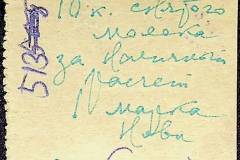 10 к. снятого
молока
за наличный
расчет
марка
513